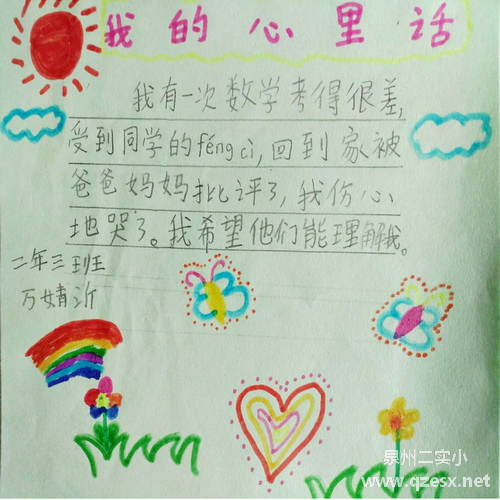 我的心里话
我有一次数学考得很差,
受到同学的fěng cì,回到家被
爸爸妈妈批评了,我伤心
地哭了。我希望他们能理解我。
二年三班
万婧沂
泉州二实小
www.qzesx.net